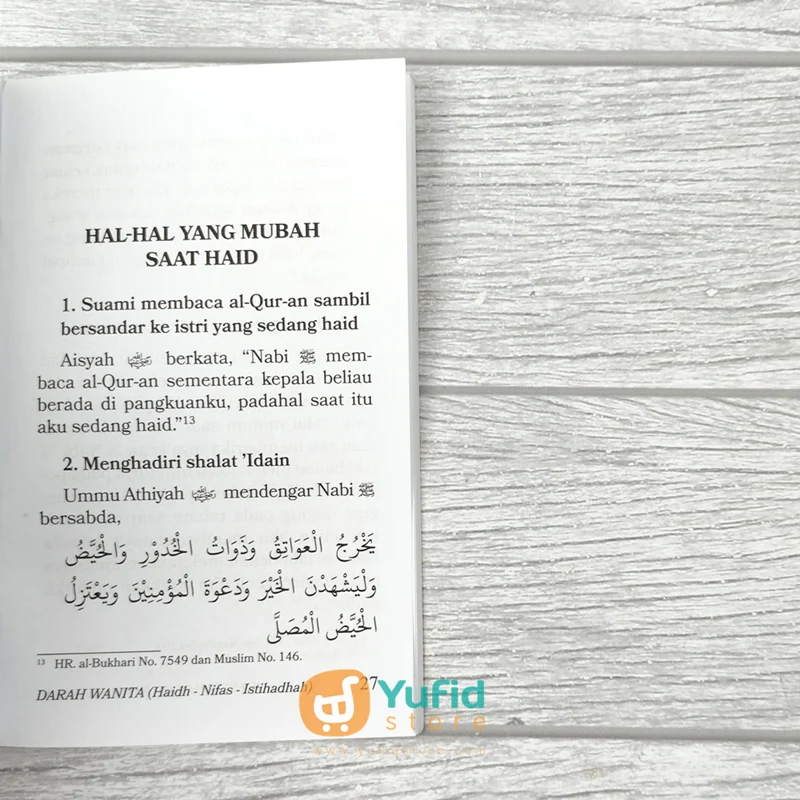 HAL-HAL YANG MUBAH
SAAT HAID
1. Suami membaca al-Qur-an sambil
bersandar ke istri yang sedang haid
Aisyah berkata, “Nabi ﷺ mem-
baca al-Qur-an sementara kepala beliau
berada di pangkuanku, padahal saat itu
aku sedang haid.”13
2. Menghadiri shalat ’Idain
Ummu Athiyah mendengar Nabi ﷺ
bersabda,
يَخْرُجُ الْعَوَاتِقُ وَذَوَاتُ الْخُدُوْرِ وَالْحُيَّضُ
وَلْيَشْهَدْنَ الْخَيْرَ وَدَعْوَةَ الْمُؤْمِنِيْنَ وَيَعْتَزِلُ
الْحُيَّضُ الْمُصَلَّى
13 HR. al-Bukhari No. 7549 dan Muslim No. 146.
DARAH WANITA (Haidh - Nifas - Istihadhah) 27
Yufid
store